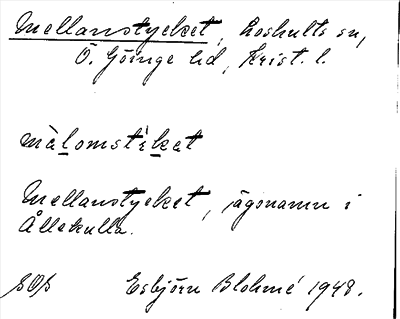 Mellanstycket, Loshults sn,
Ö. Göinge hd, Krist. l.
màlomstìkat
Mellanstycket, ägonamn i
Ållekulla.
Esbjörn Blohmé 1948.